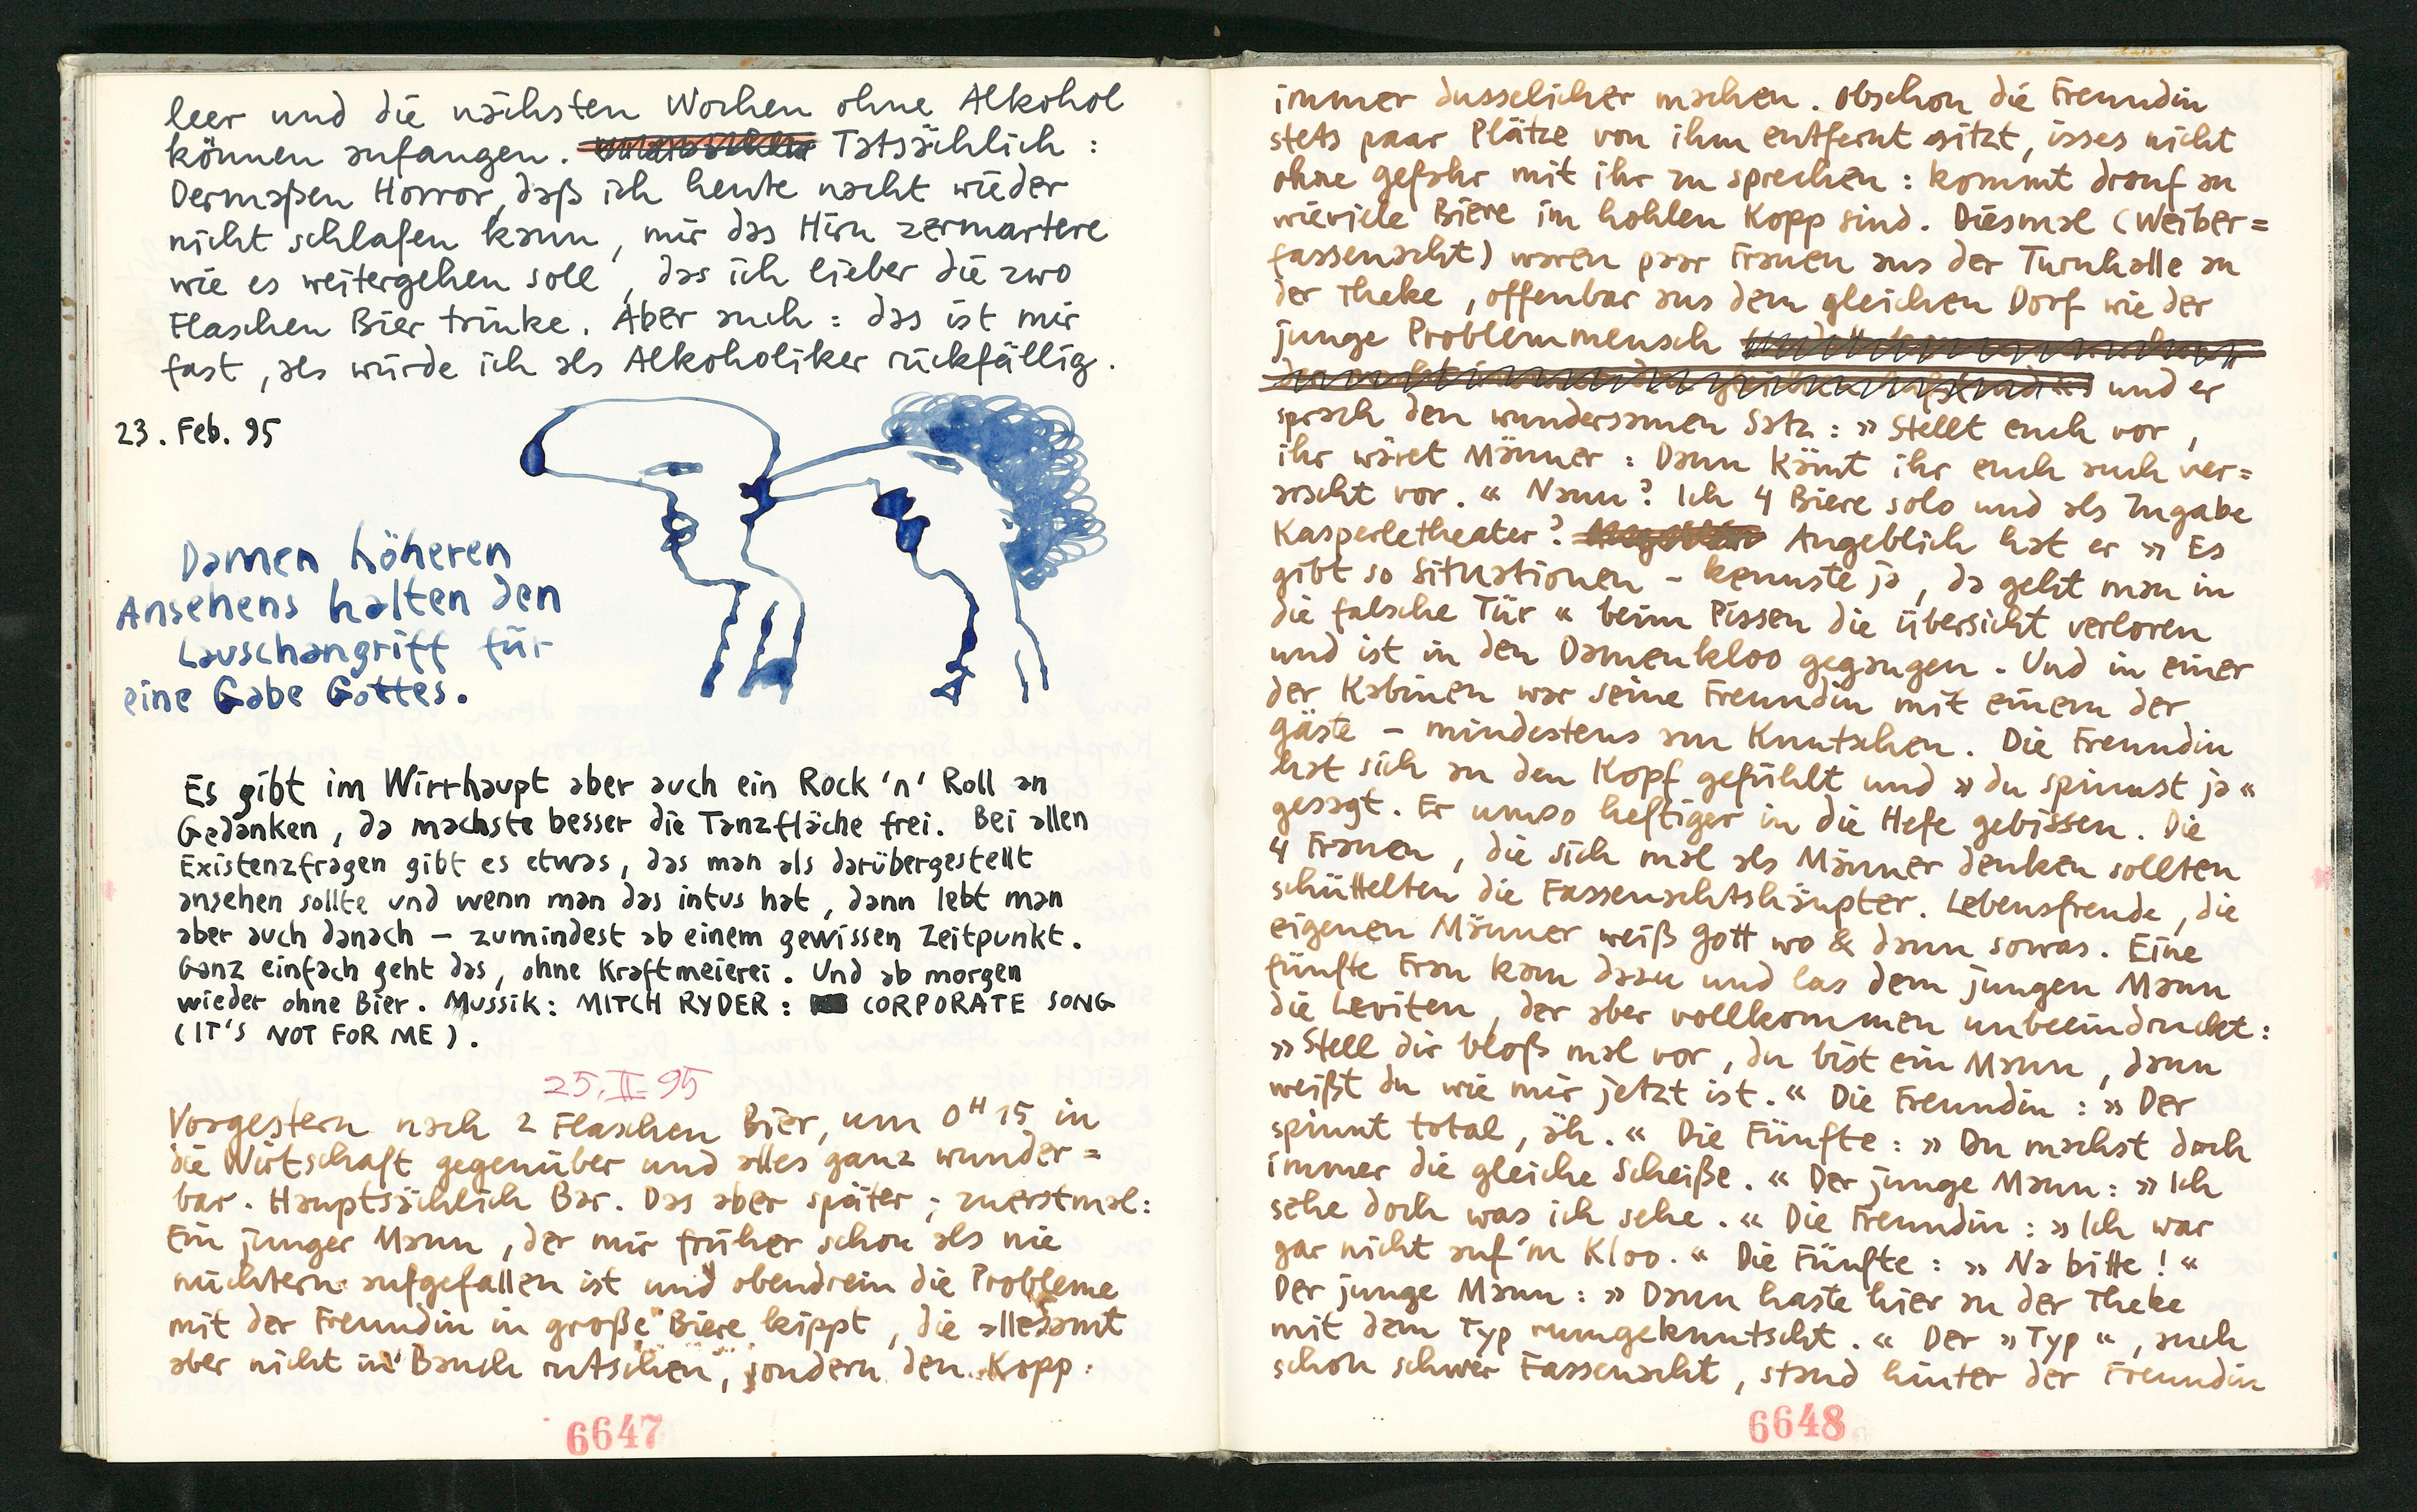 leer und die nächsten Wochen ohne Alkohol
können anfangen. Tatsächlich :
Dermaßen Horror, daß ich heute nacht wieder
nicht schlafen kann, mir das Hirn zermartere
wie es weitergehen soll, das ich lieber die zwo
Flaschen Bier trinke. Aber auch : das ist mir
fast, als würde ich als Alkoholiker rückfällig.
23. Feb. 95
Damen höheren
Ansehens halten den
Lauschangriff für
eine Gabe Gottes.
Es gibt im Wirrhaupt aber auch ein Rock 'n' Roll an
Gedanken, da machste besser die Tanzfläche frei. Bei allen
Existenzfragen gibt es etwas, das man als darübergestellt
ansehen sollte und wenn man das intus hat, dann lebt man
aber auch danach – zumindest ab einem gewissen Zeitpunkt.
Ganz einfach geht das, ohne Kraftmeierei. Und ab morgen
wieder ohne Bier. Mussik: MITCH RYDER : CORPORATE SONG
(IT'S NOT FOR ME).
25. II 95
Vorgestern nach 2 Flaschen Bier, um 0 H 15 in
die Wirtschaft gegenüber und alles ganz wunder=
bar. Hauptsächlich Bar. Das aber später ; zuerstmal:
Ein junger Mann, der mir früher schon als nie
nüchtern aufgefallen ist und obendrein die Probleme
mit der Freundin in große Biere kippt, die allesamt
aber nicht in' Bauch rutschen, sondern den Kopp :
6647
immer dusselicher machen. Obschon die Freundin
stets paar Plätze von ihm entfernt sitzt, isses nicht
ohne Gefahr mit ihr zu sprechen : kommt drauf an
wieviele Biere im hohlen Kopp sind. Diesmal (Weiber=
fassenacht) waren paar Frauen aus der Turnhalle an
der Theke, offenbar aus dem gleichen Dorf wie der
junge Problemmensch
und er
sprach den wundersamen Satz : » Stellt euch vor,
ihr wäret Männer : Dann kämt ihr euch auch ver=
arscht vor. « Nanu? Ich 4 Biere solo und als Zugabe
Kasperletheater? Angeblich hat er » Es
gibt so Situationen – kennste ja, da geht man in
die falsche Tür « beim Pissen die Übersicht verloren
und ist in den Damenkloo gegangen. Und in einer
der Kabinen war seine Freundin mit einem der
Gäste – mindestens am Knutschen. Die Freundin
hat sich an den Kopf gefühlt und » du spinnst ja «
gesagt. Er umso heftiger in die Hefe gebissen. Die
4 Frauen, die sich mal als Männer denken sollten
schüttelten die Fassenachtshäupter. Lebensfreude, die
eigenen Männer weiß Gott wo & dann sowas. Eine
fünfte Frau kam dazu und las dem jungen Mann
die Leviten, der aber vollkommen unbeeindruckt :
» Stell dir bloß mal vor, du bist ein Mann, dann
weißt du wie mir jetzt ist. « Die Freundin : » Der
spinnt total, äh. « Die Fünfte : » Du machst doch
immer die gleiche Scheiße. « Der junge Mann : » Ich
sehe doch was ich sehe. « Die Freundin : » Ich war
gar nicht auf'm Kloo. « Die Fünfte : » Na bitte ! «
Der junge Mann : » Dann haste hier an der Theke
mit dem Typ rumgeknutscht. « Der » Typ «, auch
schon schwer Fassenacht, stand hinter der Freundin
6648